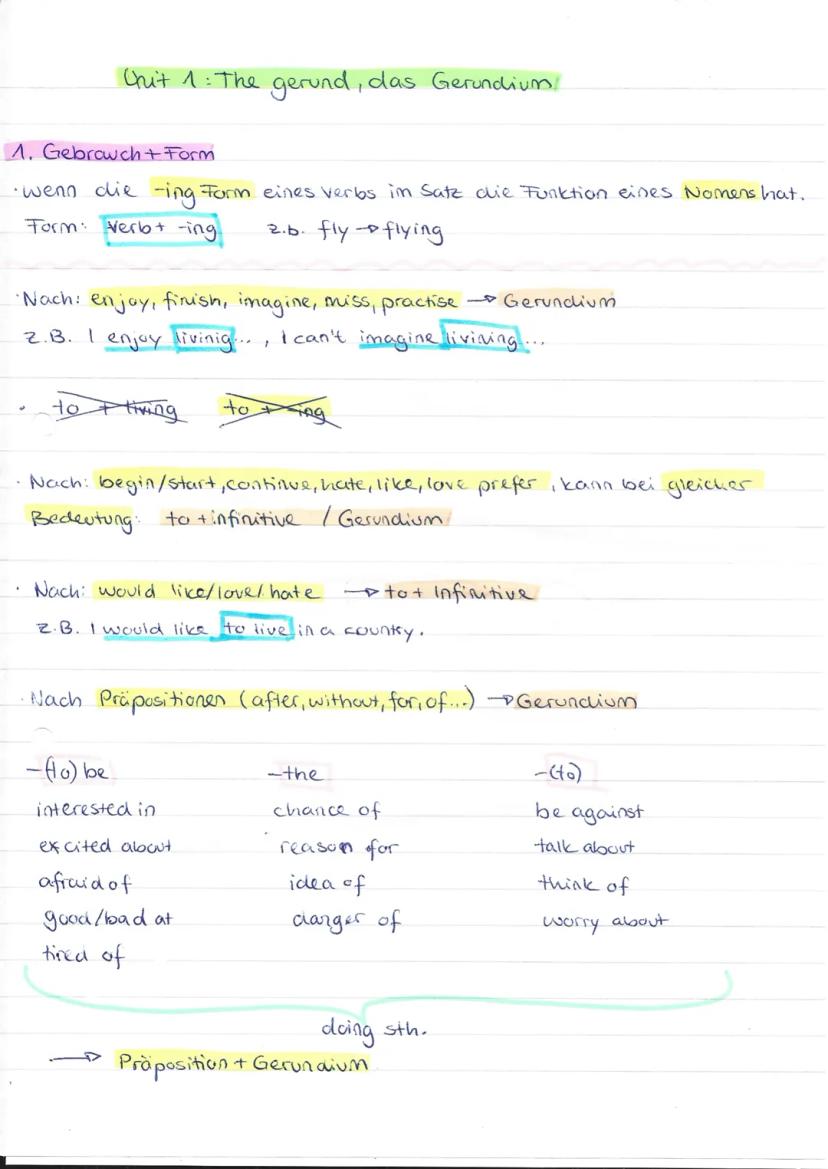 Unit 1: The gerund, das Gerundium
1. Gebrauch + Form
· wenn die -ing Form eines Verbs im Satz die Funktion eines Nomens hat.
Form: Verb + -ing z.b. fly → flying
· Nach: enjoy, finish, imagine, miss, practise → Gerundium
z.B. I enjoy livinig... , I can't imagine livining...
· to + living to + -ing
· Nach: begin/start, continue, hate, like, love prefer, kann bei gleicher
Bedeutung: to + infinitive / Gerundium
· Nach: would like/love/hate → to + Infinitive
z.B. I would like to live in a country.
· Nach Präpositionen (after, without, for, of...) → Gerundium
-(to) be -the -(to)
interested in chance of be against
excited about reason for talk about
afraid of idea of think of
good/bad at danger of worry about
tired of
doing sth.
→ Präposition + Gerundium